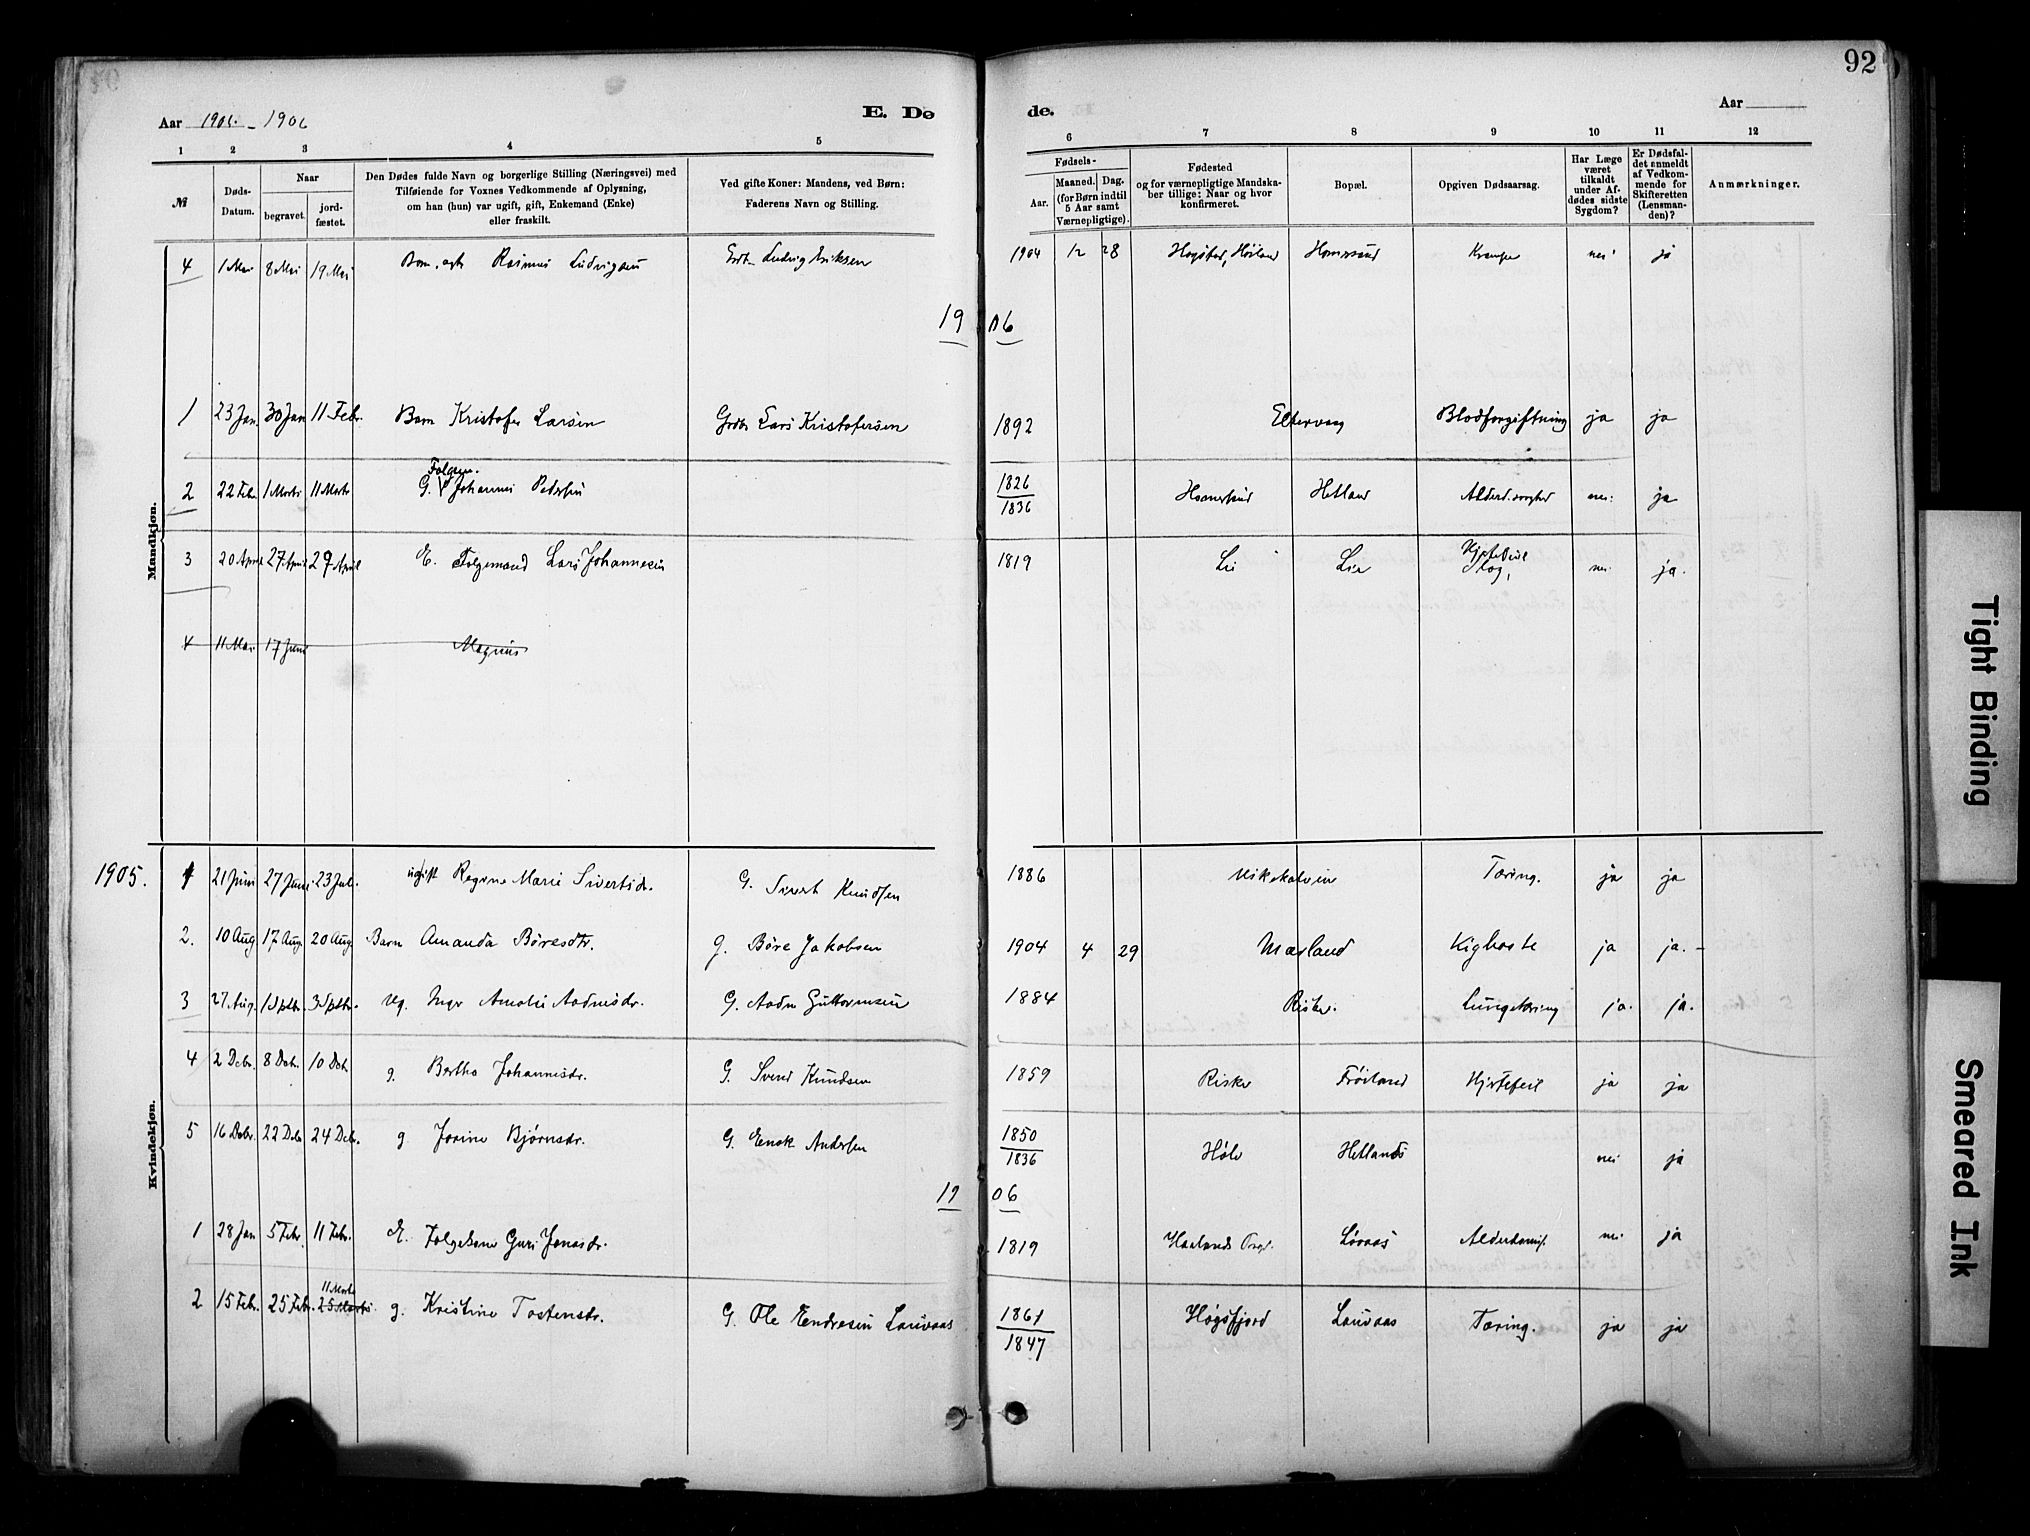 92
Aar 1905 - 1906
E. Dø
de.
Aar
1 2 3 4 5
6 7 8 9 10 11 12
№
Døds-Datum.
Naar
begravet.
jord-fæstet.
Den Dødes fulde Navn og borgerlige Stilling (Næringsvei) med
Tilføiende for Voxnes Vedkommende af Oplysning,
om han (hun) var ugift, gift, Enkemand (Enke)
eller fraskilt.
Ved gifte Koner: Mandens, ved Børn:
Faderens Navn og Stilling.
Fødsels-
Aar.
Maaned. Dag.
(for Børn indtil
5 Aar samt
Værnepligtige).
Fødested
og for værnepligtige Mandska-
ber tillige: Naar og hvor
konfirmeret.
Bopæl.
Opgiven Dødsaarsag.
Har Læge
været
tilkaldt
under Af-
dødes sidste
Sygdom?
Er Dødsfal-
det anmeldt
af Vedkom-
mende for
Skifteretten
(Lensman-
den)?
Anmærkninger.
Mandkjøn.
4 1 Mai 8 Mai 19 Mai Barn, Rasmus Ludvigsen Ludvig Eriksen 1904 12 28 Høiland Homersand Krampe nei ja
1906
1 23 Jan. 30 Jan 11 Febr. Barn Kristofer Larsen Grdbr Lars Kristofersen 1892 Eltervaag Blodforgiftning ja ja
2 22 Febr 1 Marts 11 Marts G. Folgem. Johannes Pedersen 1826 1836 Homersand Hetland nei ja
3 20 April 27 April 29 April E. Folgemand Lars Johannesen 1819 Li Lie Hjertefeil nei ja.
4 11 Mai 17 Juni Magnus
Kvindekjøn.
1905.
1 21 Juni 27 Juni 23 Juli. ugift Regine Marie Sivertsdr. G. Sivert Knudsen 1886 Tæring. ja ja
2. 10 Aug 17 Aug. 20 Aug Barn Amanda Børesdtr. g. Børe Jakobsen 1904 4 29 Mæland Kighoste ja ja. -
3 27 Aug. 1 Sptbr. 3 Sptbr. ug. Inger Amalie Aadnesdr. G. Aadne Guttormsen 1884 Riske. Lungetæring ja. ja.
4 2 Debr. 8 Debr. 10 Debr g. Bertha Johannesdr. G. Svend Knudsen 1859 Riske Frøiland Hjertefeil ja ja
5 16 Debr. 22 Debr 24 Debr. g. Josine Bjørnsdr. G. Enok Andersen 1850 1836 Høle Hetland nei ja
1906
1 28 Jan 5 Febr. 11 Febr. E. Folgekone Guri Jonasdr. 1819 Løvaas nei ja
2 15 Febr. 25 Febr. 11 Marts 25 Marts g. Kristine Tostensdr. G. Ole Endresen Lauvaas 1861 1847 Høgsfjord Lauvaas Tæring. ja ja
Tight Binding
Smeared Ink